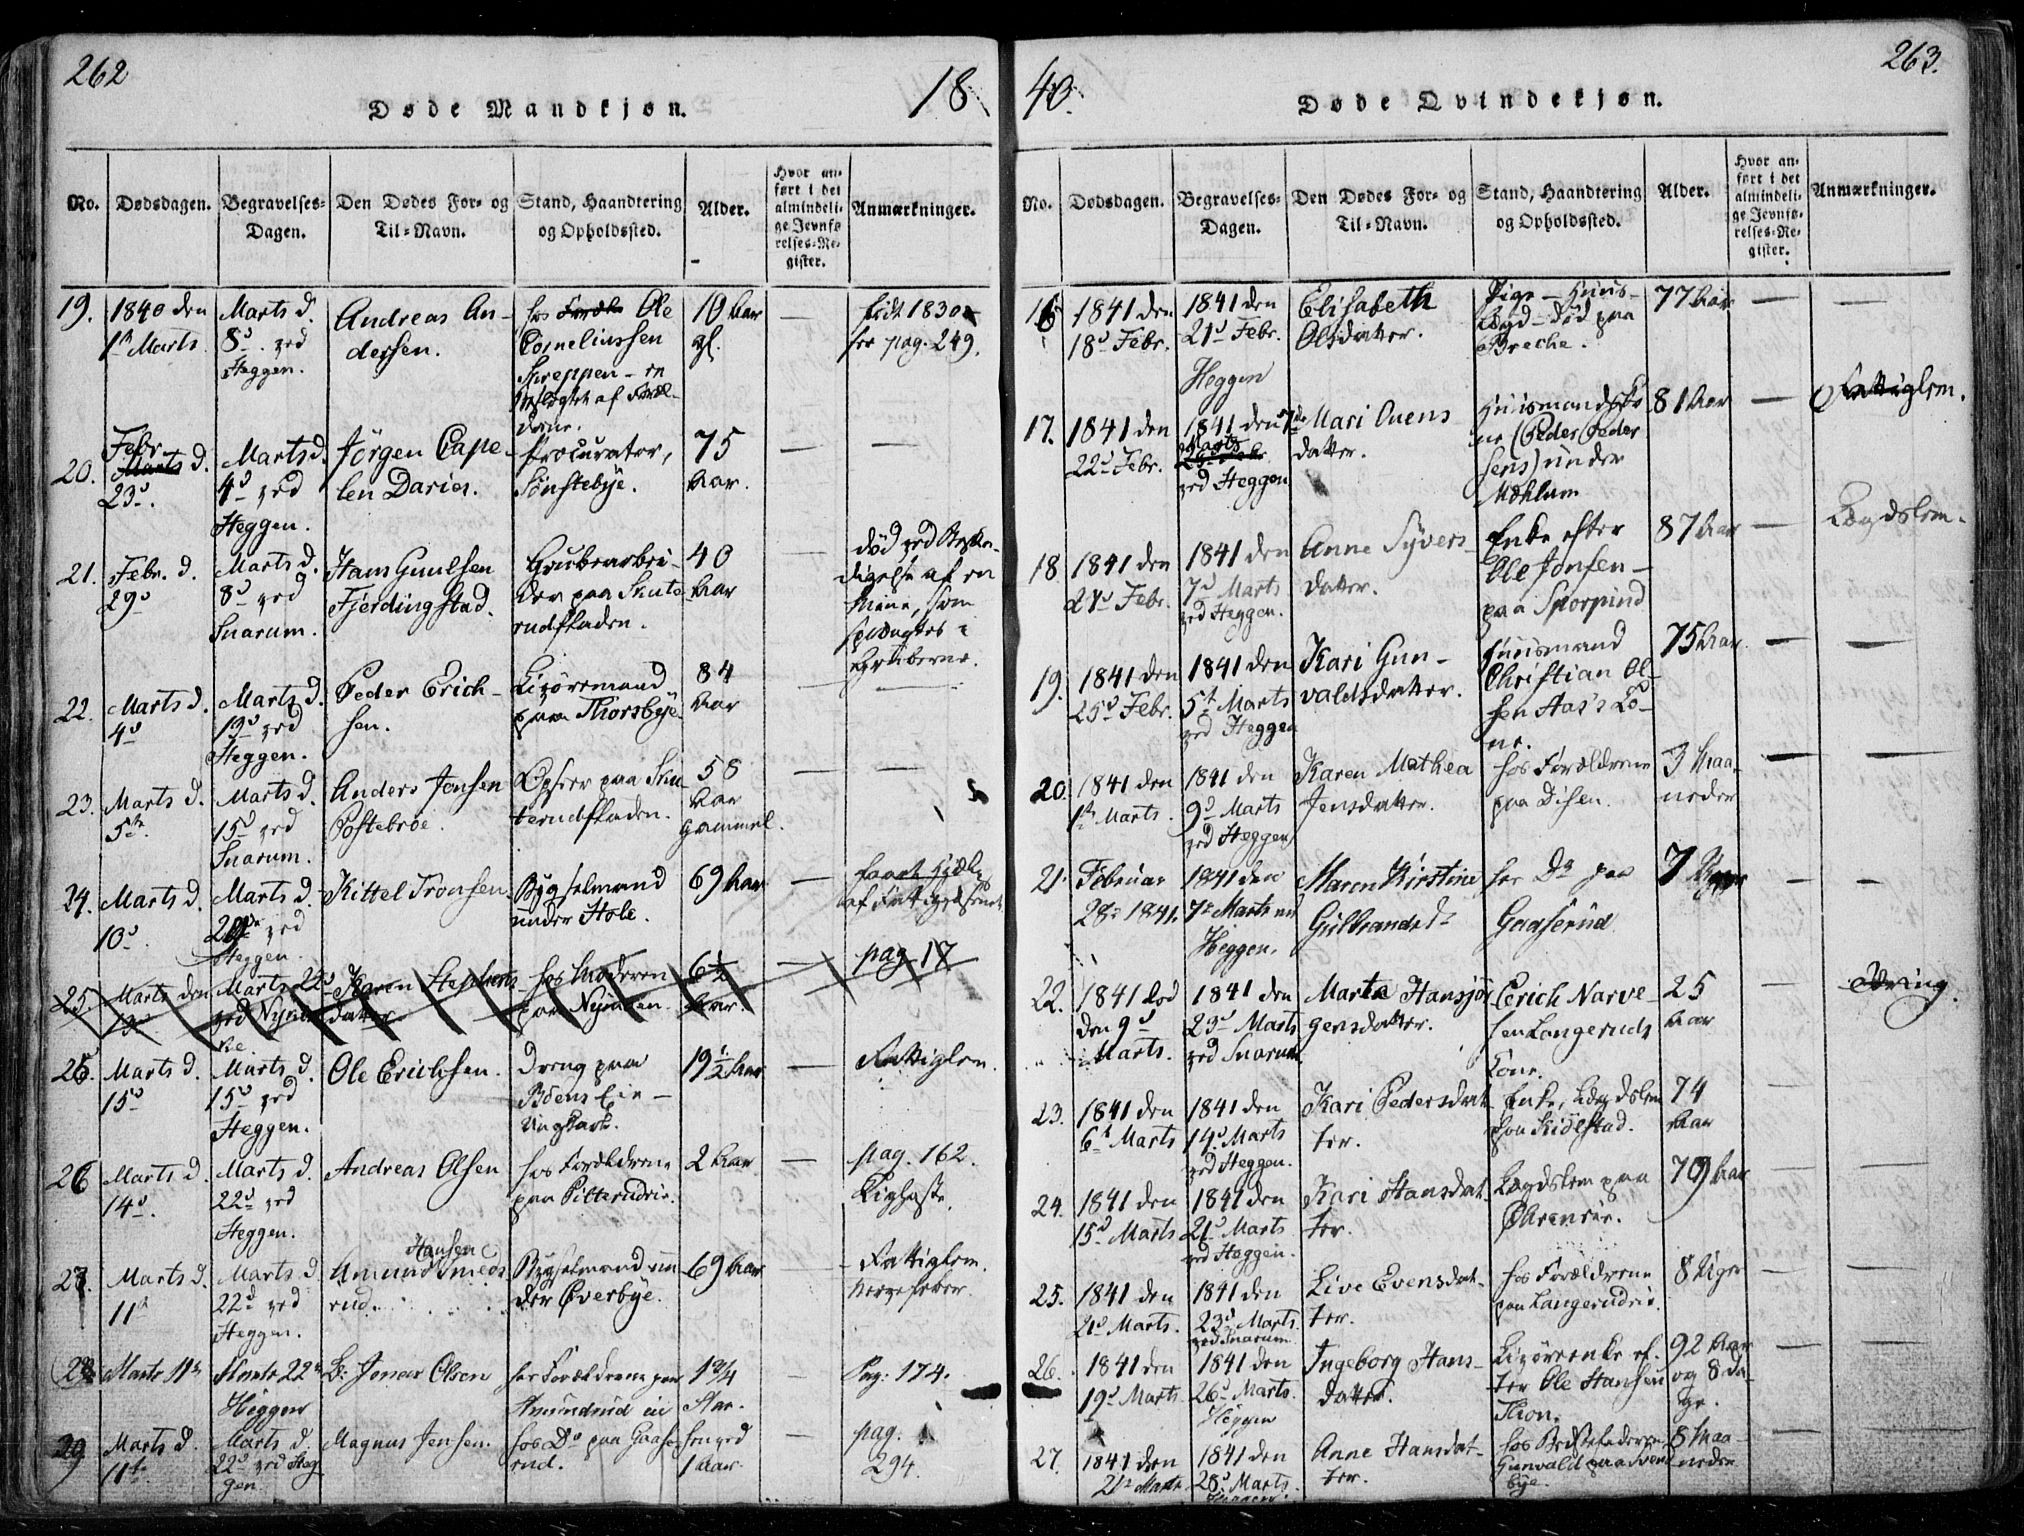 262
18
Døde Mandkjøn.
No.
Dødsdagen.
Begravelses-
Dagen.
Den Dødes For- og
Til-Navn.
Stand, Haandtering
og Opholdssted.
Alder.
Hvor an-
ført i det
almindeli-
ge Jevnfø-
relses-Re-
gister.
Anmærkninger.
19.
1840 den
1ste Marts
Marts d.
8de ved
Heggen.
Andreas An-
dersen.
hos Ole
Cornelinssen
en
af Foræl-
drene.
10 Aar
gl.
født 1830
see pag. 249.
20.
Febr.
Marts d.
23de
Marts d.
4de ved
Heggen.
Jörgen Cape-
len Daries.
Procurator,
Sønstebye.
75
Aar.
21.
Febr. d.
29de
Marts d.
8de ved
Snarum.
Hans Guulsen
Fjerdingstad.
Grubearbei-
der paa Skute-
rudfladen.
40
Aar
død ved Beska-
digelse af en
Mine, som
sprængtes i
Gruberne.
22.
Marts d.
4de
Marts d.
19de ved
Heggen.
Peder Erich-
sen.
Livöremand
paa Thorsbye.
84
Aar
23.
Marts d.
5te
Marts d.
15de ved
Snarum.
Anders Jensen
Postebroe.
Opsier paa Sku-
terudfladen.
58
Aar
gammel.
24.
Marts d.
10de
Marts d.
ved
Heggen.
Kittel Tronsen
Bygselmand
under Hole.
69 Aar
faaet Hjælp
af
25.
Marts den
13de
Marts 22de
ved
Karen Stephens-
datter
hos Moderen
paa
6½
Aar
pag. 17
25.
Marts d.
15de
Marts d.
15de ved
Heggen.
Ole Erichsen.
Dreng paa
Böens Eie-
19½ Aar
Fattiglem.
26
Marts d.
14de
Marts d.
22de ved
Heggen.
Andreas Olsen
hos Forældrene
paa Pitterudeie.
2 Aar.
pag. 162.
Kighoste.
27.
Marts d.
11te
Marts d.
22de ved
Heggen.
Hansen
Amund Smeds-
rud.
Bygselmand un-
der Overbye.
69 Aar
Fattiglem.
Nervefeber.
28
Marts 11te
Marts 22de
Heggen
B: Jonas Olsen
hos Forældrene paa
Amundrud eie
1¾
Aar.
Pag: 174.
29
Marts d.
11te
Marts d.
22de ved Heg-
gen
Magnus Jensen.
hos Do paa Gaase-
rud.
henved
1 Aar
pag.
294.
263.
40.
Døde Qvindekjøn.
No.
Dødsdagen.
Begravelses-
Dagen.
Den Dødes For- og
Til-Navn.
Stand, Haandtering
og Opholdssted.
Alder.
Hvor an-
ført i det
almindeli-
ge Jevnfø-
relses-Re-
gister.
Anmærkninger.
16
1841 den
18de Febr.
1841 den
21de Febr.
Heggen
Elisabeth
Olsdatter.
Pige - Huus-
Lægd - død paa
Breche.
77 Aar
17.
1841 den
22de Febr.
1841 den 7de
Marts
ved Heggen
Mari Ouens
datter.
Huusmandsko-
ne (Peder Peder-
sens) under
Mæhlum
81 Aar
Fattiglem.
18
1841 den
27de Febr.
1841 den
7de Marts
ved Heggen.
Anne Syvers-
datter.
Enke efter
Ole Jonsen-
paa Sporpind
87 Aar
Lægdslem.
19.
1841 den
25de Febr.
1841 den
5te Marts
ved Heggen
Kari Gun-
valdsdatter.
Huusmand
Christian Ol-
sen Aas's Ko-
ne.
75 Aar.
20.
1841 den
1ste Marts.
1841 den
9de Marts
ved Heggen
Karen Mathea
Jensdatter.
hos Forældrene
paa Disen.
3 Maa-
neder
21.
Februar
28de 1841.
1841 den
7de Marts ved
Heggen.
Maren Kirstine
Gulbrandsdr
hos Do paa
Gaaserud
7 Uger
22.
1841 død
den 9de
Marts.
1841 den
23de Marts
ved Snarum
Marta Hansjör-
gensdatter.
Erich Narve-
sen Langeruds
Kone.
25
Aar
23.
1841 den
6te Marts
1841 den
14de Marts
ved Heggen.
Kari Pedersdat-
ter.
Enke, Lægdslem
paa Kidlstad.
74
Aar
24.
1841 den
15de Marts
1841 den
21de Marts
ved Heggen.
Kari Hansdat-
ter.
Lægdslem paa
Ohreneie.
70 Aar
25.
1841 den
21de Marts.
1841 den
23de Marts.
ved Snarum
Live Evensdat-
ter.
hos Forældrene
paa Langerudeie.
8 Uger
26.
1841 den
19de Marts
1841 den
26de Marts.
Heggen
Ingeborg Hans-
datter.
Livöreenke ef-
ter Ole Hansen
Thon.
92 Aar
og 8 Da-
ge.
27.
1841 den
21de Marts
1841 den
28de Marts.
Heggen.
Anne Hansdat-
ter.
hos Bedstefaderen
Gunvald paa Sven-
bye.
8 Maa-
neder